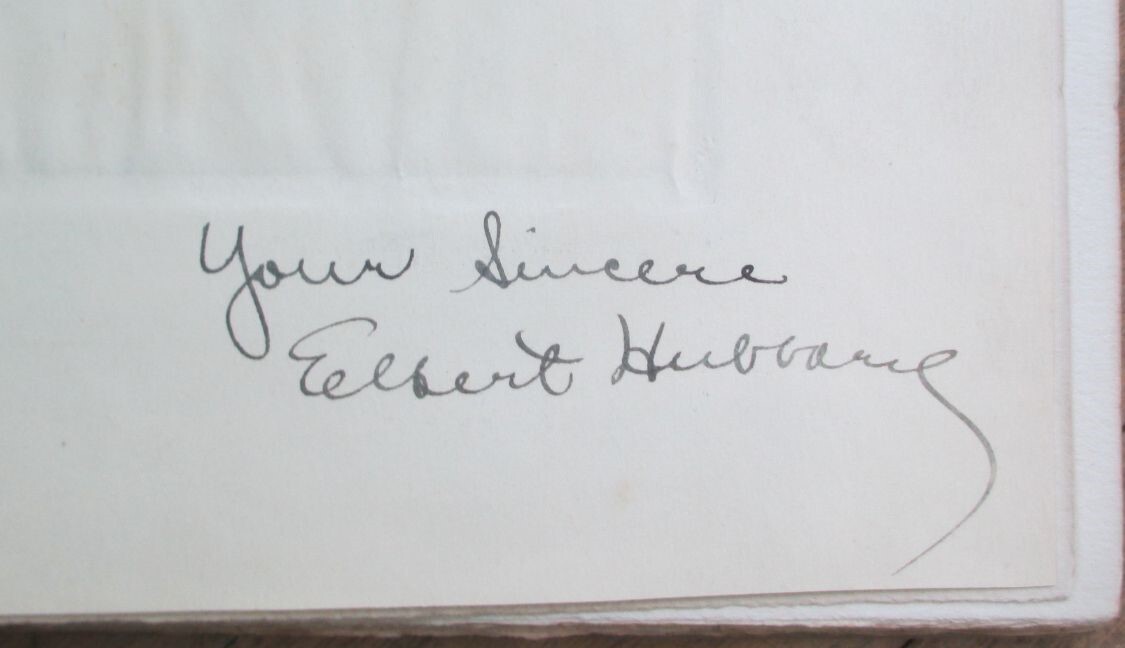 Your Sincere
Elbert Hubbard